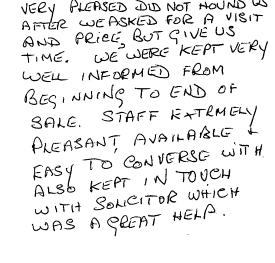 VERY PLEASED DID NOT HOUND US
AFTER WE ASKED FOR A VISIT
AND PRICE, BUT GIVE US
TIME. WE WERE KEPT VERY
WELL INFORMED FROM
BEGINNING TO END OF
SALE. STAFF EXTRMELY
PLEASANT, AVAILABLE +
EASY TO CONVERSE WITH.
ALSO KEPT IN TOUCH
WITH SOLICITOR WHICH
WAS A GREAT HELP.